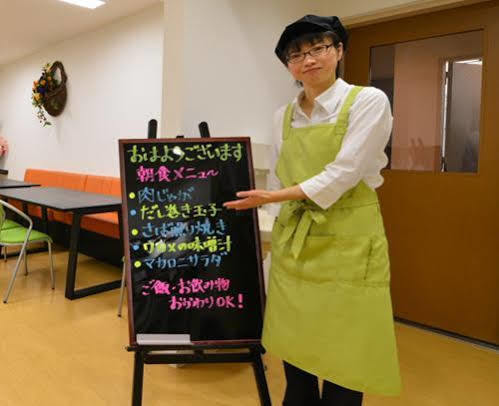 おはようございます
朝食メニュー
肉じゃが
だし巻き玉子
さば照り焼き
ワカメの味噌汁
マカロニサラダ
ご飯・お飲み物
おかわりOK!